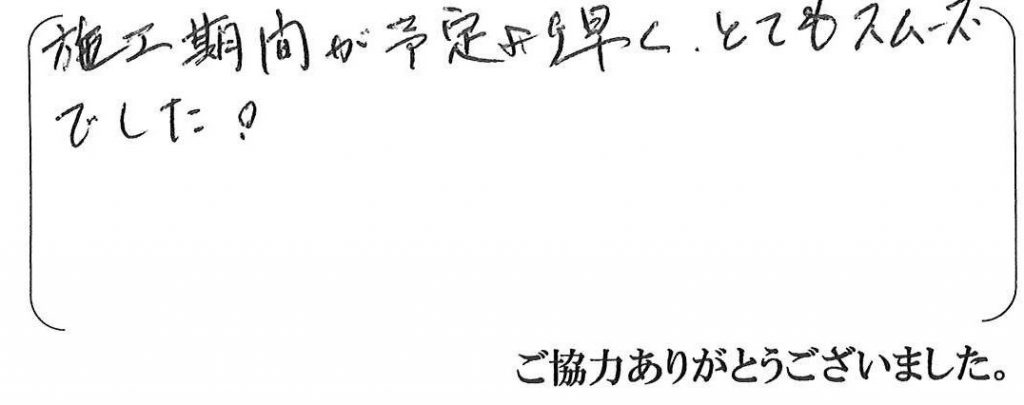 施工期間が予定より早く、とてもスムーズ
でした。
ご協力ありがとうございました。